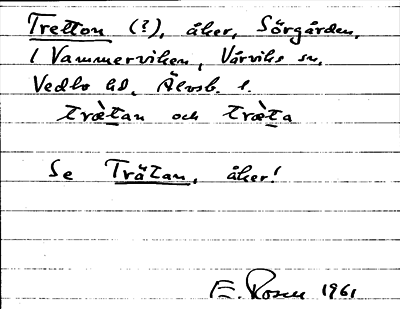 Tretton (?), åker, Sörgården,
i Vammerviken, Vårviks sn,
Vedbo hd, Älvsb. l.
træ̀tan och træ̀ta
Se Trätan, åker!
E. Rosen 1961